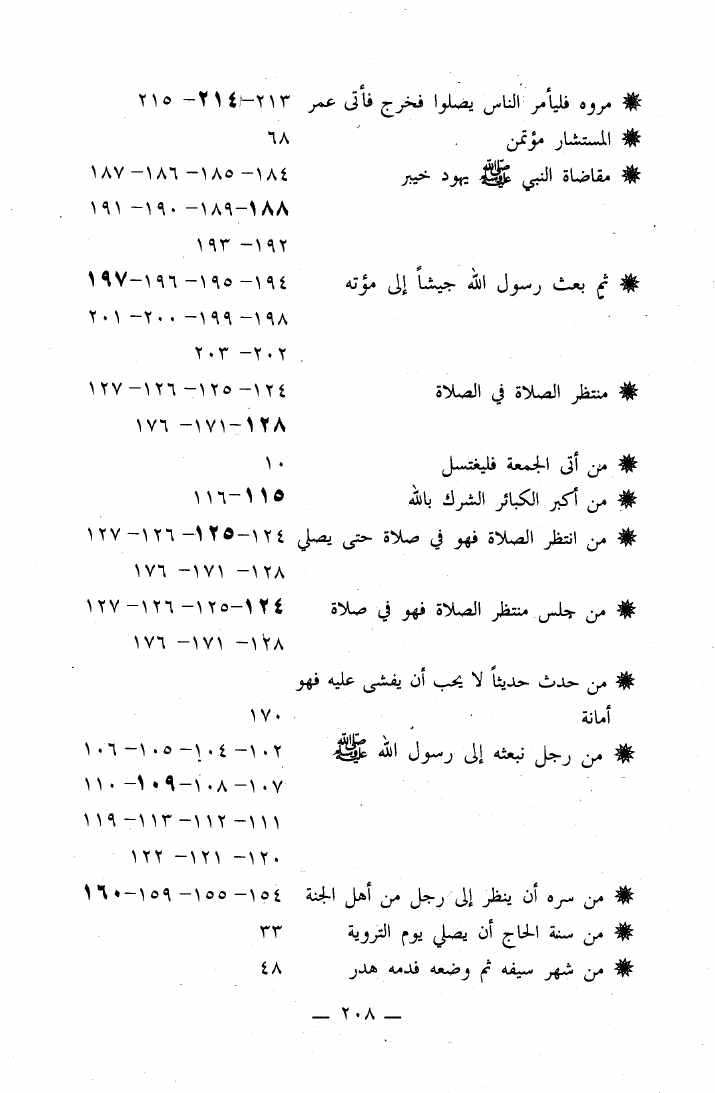 ✷ مروه فليأمر الناس يصلوا فخرج فأتى عمر ٢١٣–٢١٤– ٢١٥
✷ المستشار مؤتمن ٦٨
✷ مقاضاة النبي ﷺ يهود خيبر ١٨٤– ١٨٥– ١٨٦– ١٨٧
١٨٨–١٨٩– ١٩٠– ١٩١
١٩٢– ١٩٣
✷ ثم بعث رسول الله جيشاً إلى مؤته ١٩٤– ١٩٥– ١٩٦–١٩٧
١٩٨– ١٩٩– ٢٠٠– ٢٠١
٢٠٢– ٢٠٣
✷ منتظر الصلاة في الصلاة ١٢٤– ١٢٥– ١٢٦– ١٢٧
١٢٨–١٧١– ١٧٦
✷ من أتى الجمعة فليغتسل ١٠
✷ من أكبر الكبائر الشرك بالله ١١٥–١١٦
✷ من انتظر الصلاة فهو في صلاة حتى يصلي ١٢٤–١٢٥– ١٢٦– ١٢٧
١٢٨– ١٧١– ١٧٦
✷ من جلس منتظر الصلاة فهو في صلاة ١٢٤–١٢٥– ١٢٦– ١٢٧
١٢٨– ١٧١– ١٧٦
✷ من حدث حديثاً لا يحب أن يفشى عليه فهو
أمانة ١٧٠
✷ من رجل نبعثه إلى رسول الله ﷺ ١٠٢– ١٠٤– ١٠٥– ١٠٦
١٠٧– ١٠٨–١٠٩– ١١٠
١١١– ١١٢– ١١٣– ١١٩
١٢٠– ١٢١– ١٢٢
✷ من سره أن ينظر إلى رجل من أهل الجنة ١٥٤– ١٥٥– ١٥٩–١٦٠
✷ من سنة الحاج أن يصلي يوم التروية ٣٣
✷ من شهر سيفه ثم وضعه فدمه هدر ٤٨
— ٢٠٨ —